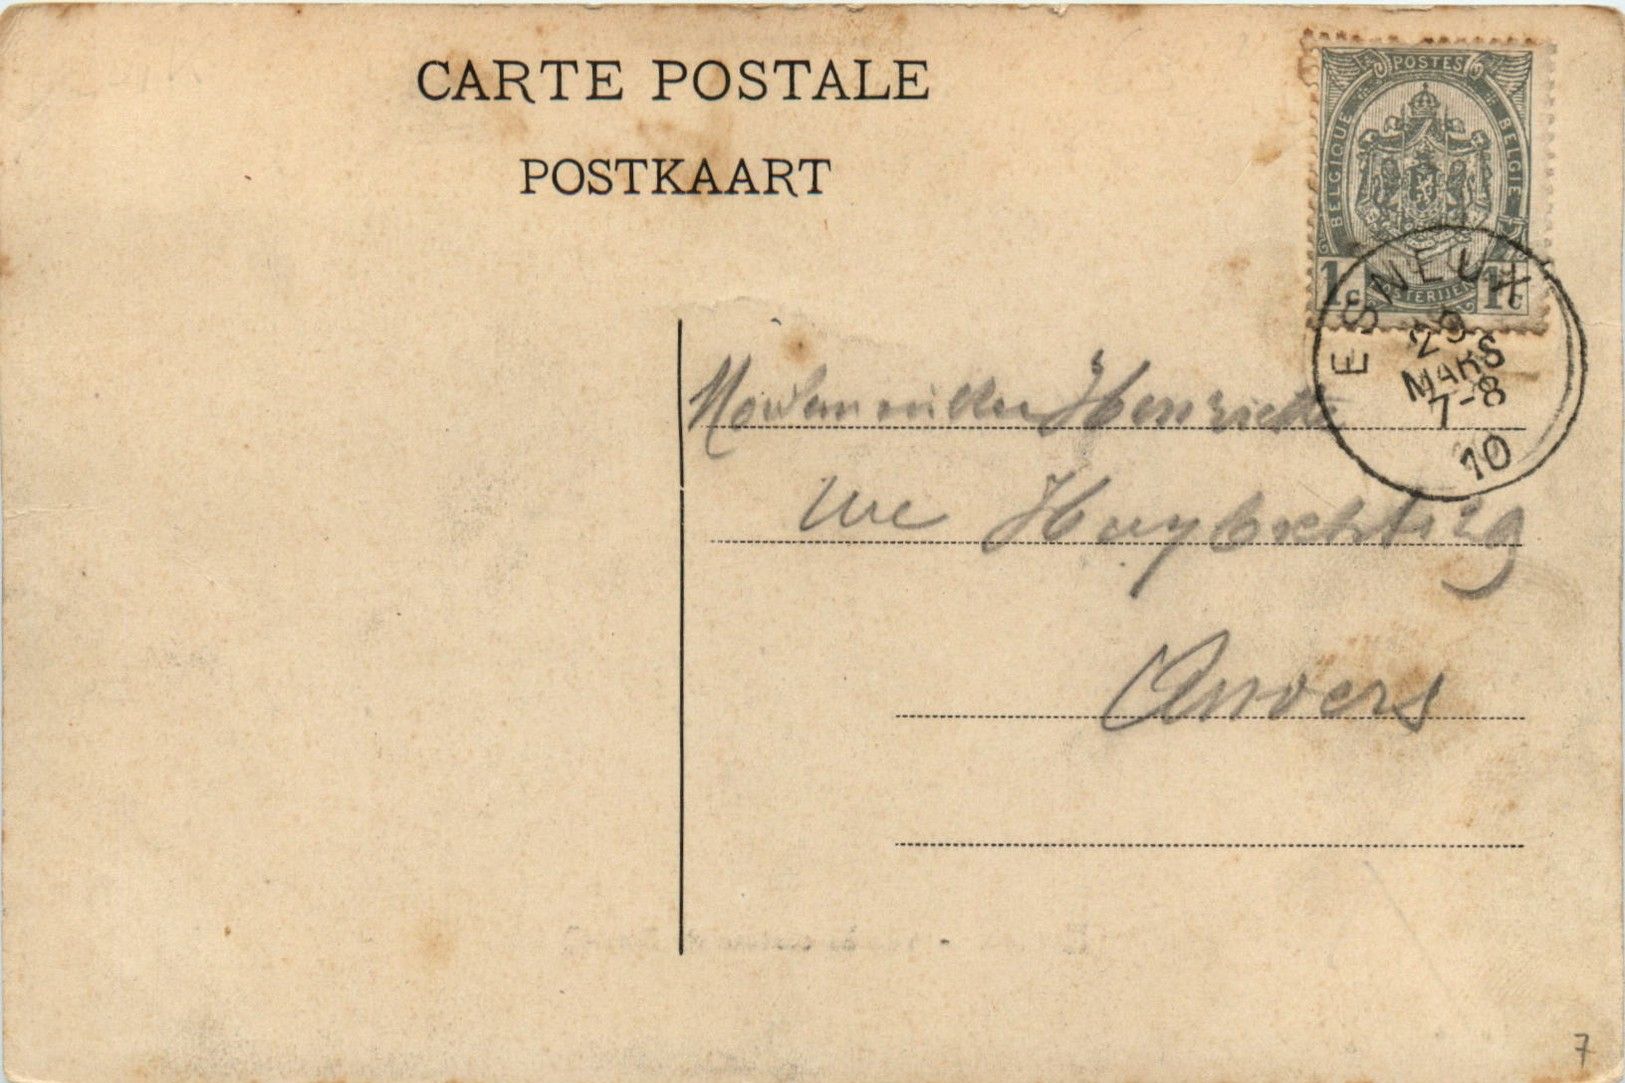 CARTE POSTALE
POSTKAART
POSTES
BELGIQUE BELGIE
1c 1c
ESNEUX
29
MARS
7-8
10
Henriette
rue
Anvers
7